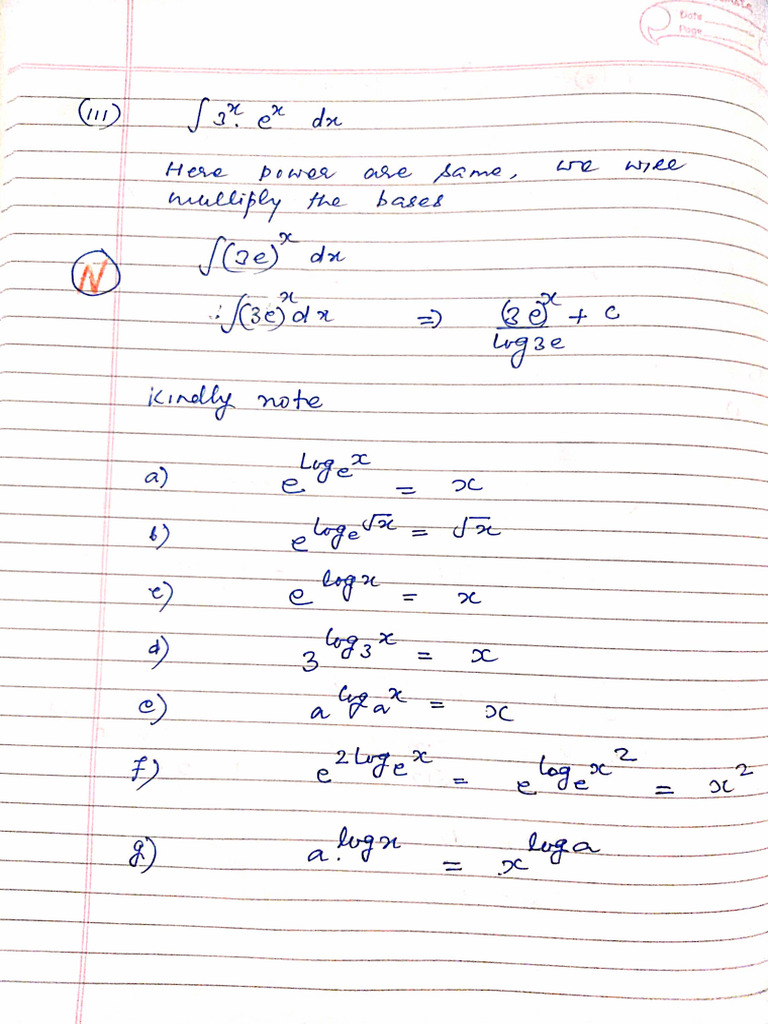 Date
Page
(III) ∫ 3ˣ. eˣ dx
Here power are same, we will
multiply the bases
∫(3e)ˣ dx
N
∴ ∫(3e)ˣ dx ⇒ (3e)ˣ / log 3e + c
Kindly note
a) e^(log_e x) = x
b) e^(log_e √x) = √x
c) e^(log x) = x
d) 3^(log_3 x) = x
e) a^(log_a x) = x
f) e^(2 log_e x) = e^(log_e x²) = x²
g) a.^(log x) = x^(log a)